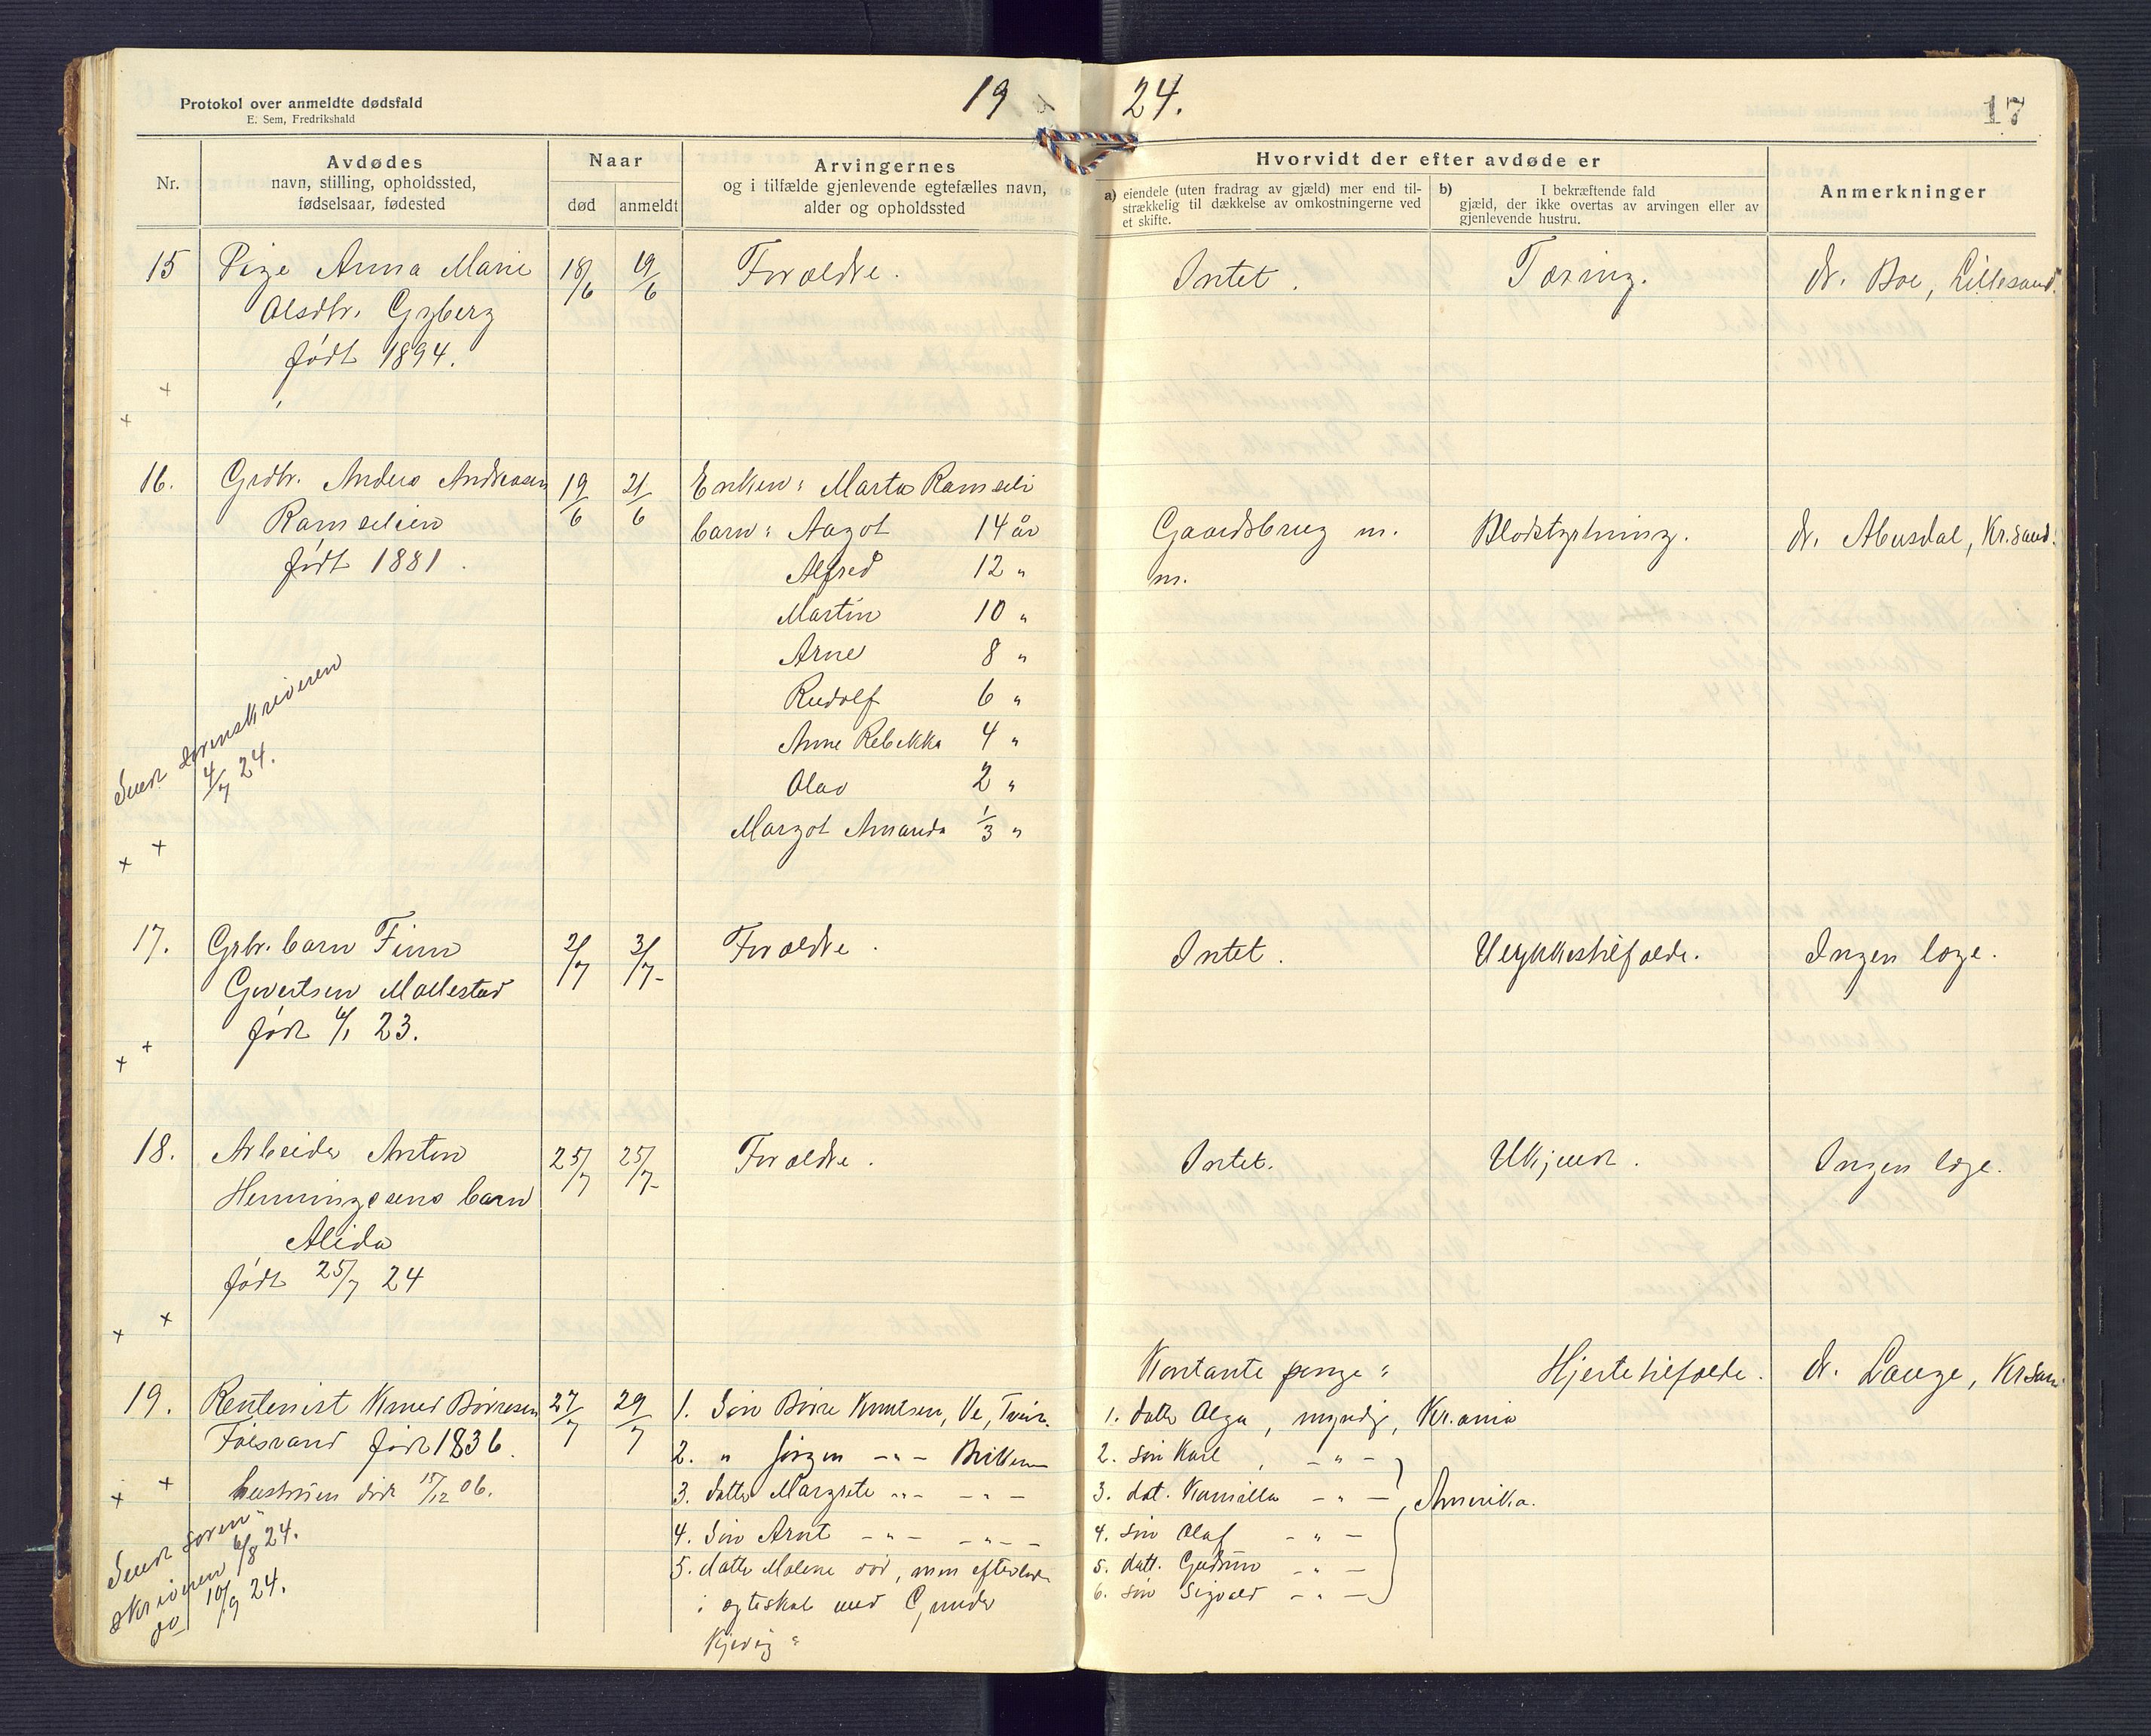 Protokol over anmeldte dødsfald
E. Sem, Fredrikshald
19 24.
17
Nr.
Avdødes
navn, stilling, opholdssted,
fødselsaar, fødested
Naar
død
anmeldt
Arvingernes
og i tilfælde gjenlevende egtefælles navn,
alder og opholdssted
Hvorvidt der efter avdøde er
a) eiendele (uten fradrag av gjæld) mer end til-
strækkelig til dækkelse av omkostningerne ved
et skifte.
b) I bekræftende fald
gjæld, der ikke overtas av arvingen eller av
gjenlevende hustru.
Anmerkninger
15 Pige Anna Marie 18/6 19/6 Forældre. Intet. Tæring. dr. Boe, Lillesand.
Olsdtr. Gyberg
født 1894.
16. Grdbr. Anders Andreasen 19/6 21/6 Enken: Marta Ramselie
Ramselien barn: Aagot 14 år Gaardsbrug m. Blodstyrtning. dr. Abusdal, Kr.sand.
født 1881. Alfred 12 " m.
Martin 10 "
Arne 8 "
Rudolf 6 "
Anne Rebekka 4 "
Olav 2 "
Margot Amanda 1/3 "
Sendt sorenskriveren
4/7 24.
17. Grbr. barn Finn 2/7 3/7 Forældre. Intet. Ulykkestilfælde. Ingen læge.
Gevertsen Mollestad
født 6/1 23.
18. Arbeider Anton 25/7 25/7 Forældre. Intet. Ukjendt. Ingen læge.
Henningsens barn
Alida
født 25/7 24
Kontante penge: Hjertetilfælde. dr. Lauge, Krsand
19. Rentenist Knud Börresen 27/7 29/7 1. Sön Börre Knutsen, Ve, Tveit. 1. datter Olga, myndig, Kr.ania
Foesvand født 1836. 2. " Jörgen -"- Birkenes 2. sön Karl, -"-
hustruen död 15/12 06. 3. datter Margrete -"- -"- 3. dat. Kamilla -"- Amerika.
4. Sön Arnt -"- -"- 4. sön Olaf -"-
5. datter Malene död, men efterladt 5. datt. Gudrun -"-
i ægteskab med Gunder 6. sön Sigvald -"-
Kjevig:
Sendt soren-
skriveren 6/8 24.
do 10/9 24.